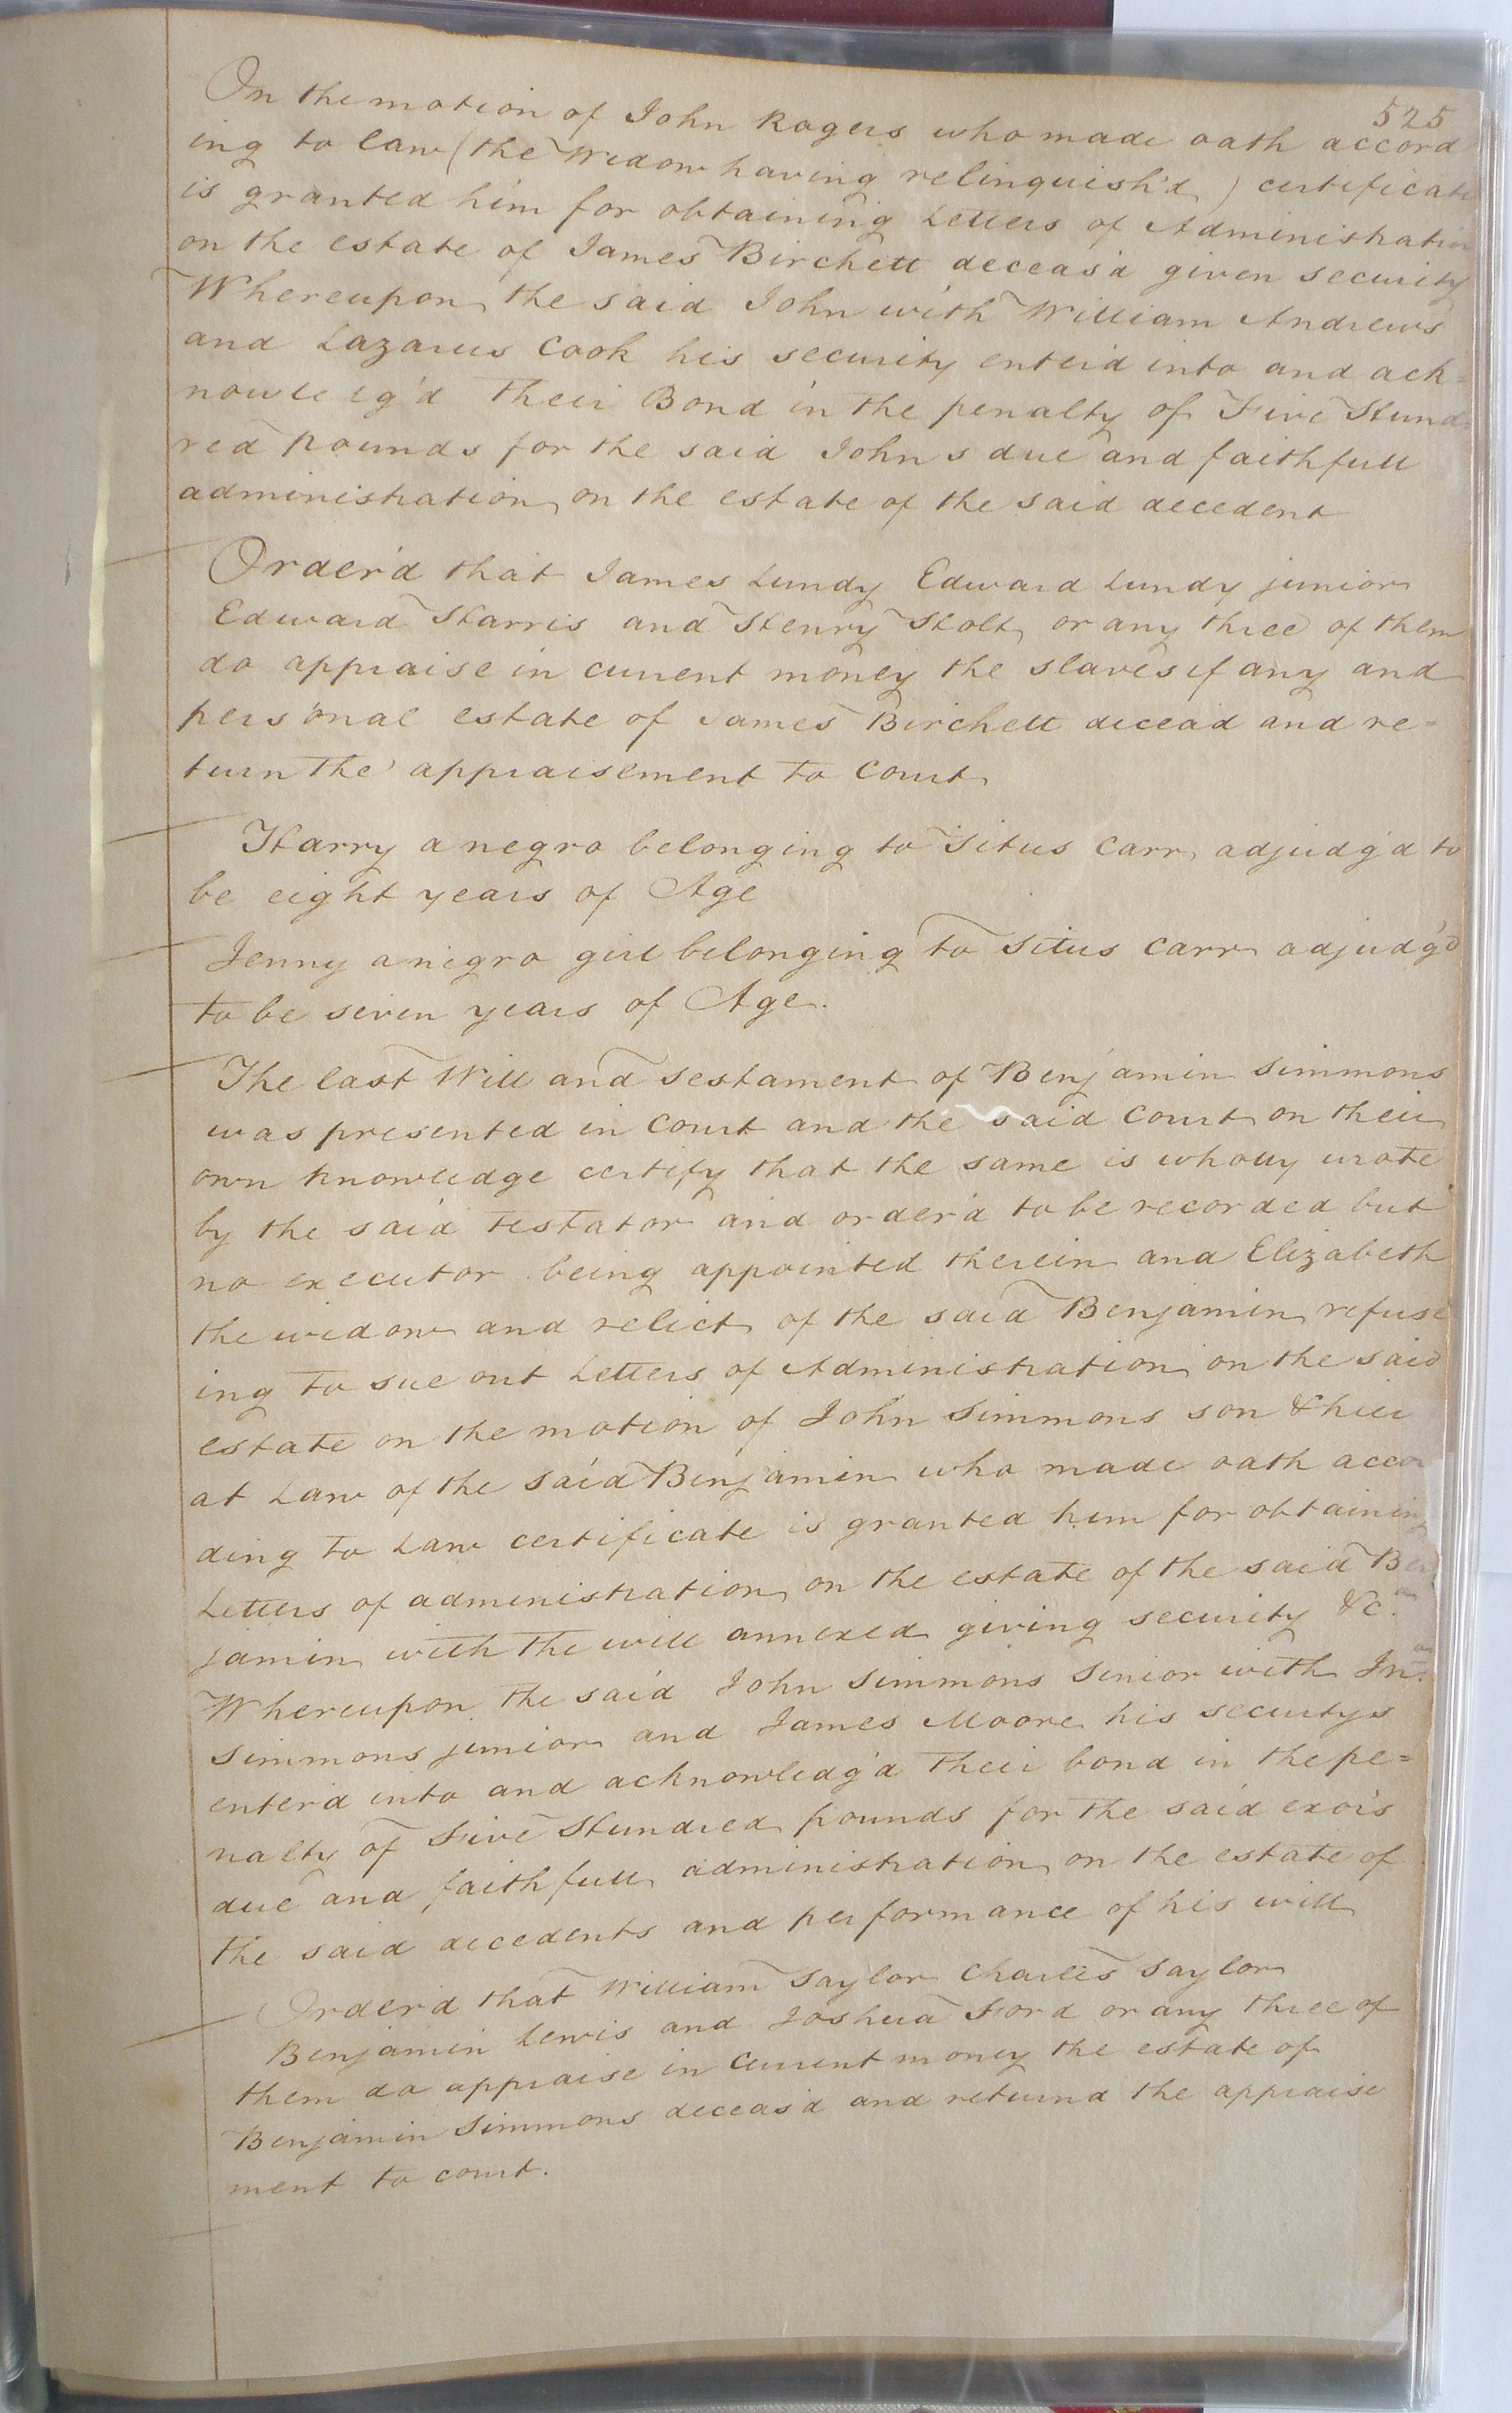 525
On the motion of John Rogers who made oath accord
ing to law (the Widow having relinquish'd) certificate
is granted him for obtaining Letters of Administration
on the estate of James Birchett deceas'd given security
Whereupon the said John with William Andrews
and Lazarus Cook his security enter'd into and ack=
nowledg'd Their Bond in the penalty of Five Hund=
red pounds for the said Johns due and faithfull
administration on the estate of the said decedent
Order'd that James Lundy Edward Lundy junior
Edward Harris and Henry Holt or any three of them
do appraise in current money the slaves if any and
personal estate of James Birchett deceas'd and re=
turn the appraisement to Court
Harry a negro belonging to Titus Carr adjudg'd to
be eight years of Age
Jenny a negro girl belonging to Titus Carr adjudg'd
to be seven years of Age.
The last Will and Testament of Benjamin Simmons
was presented in Court and the said Court on their
own knowledge certify that the same is wholly wrote
by the said Testator and order'd to be recorded but
no executor being appointed therein and Elizabeth
the widow and relict of the said Benjamin refuse
ing to sue out Letters of Administration on the said
estate on the motion of John Simmons son & heir
at Law of the said Benjamin who made oath accor
ding to Law certificate is granted him for obtaining
Letters of administration on the estate of the said Ben
jamin with the will annexed giving security &c.
Whereupon the said John Simmons Senior with Jn.
Simmons junior and James Moore his securitys
enter'd into and acknowledg'd Their bond in the pe=
nalty of Five Hundred pounds for the said exo'rs
due and faithfull administration on the estate of
the said decedents and performance of his will
Order'd that William Taylor Charles Taylor
Benjamin Lewis and Joshua Ford or any three of
them do appraise in Current money the estate of
Benjamin Simmons deceas'd and returnd the appraise
ment to court.